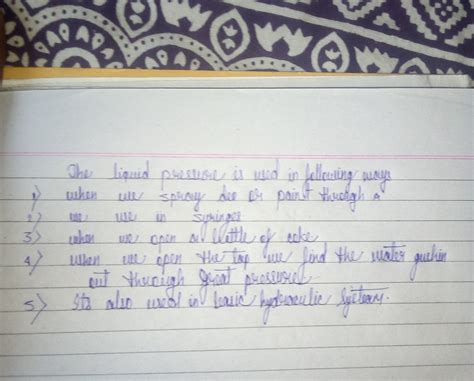 The liquid pressure is used in following ways
1) when we spray deo or paint through a
2) we use in syringes
3) when we open a bottle of coke
4) when we open the tap we find the water gushin
out through great pressure
5) Its also used in basic hydraulic systems.